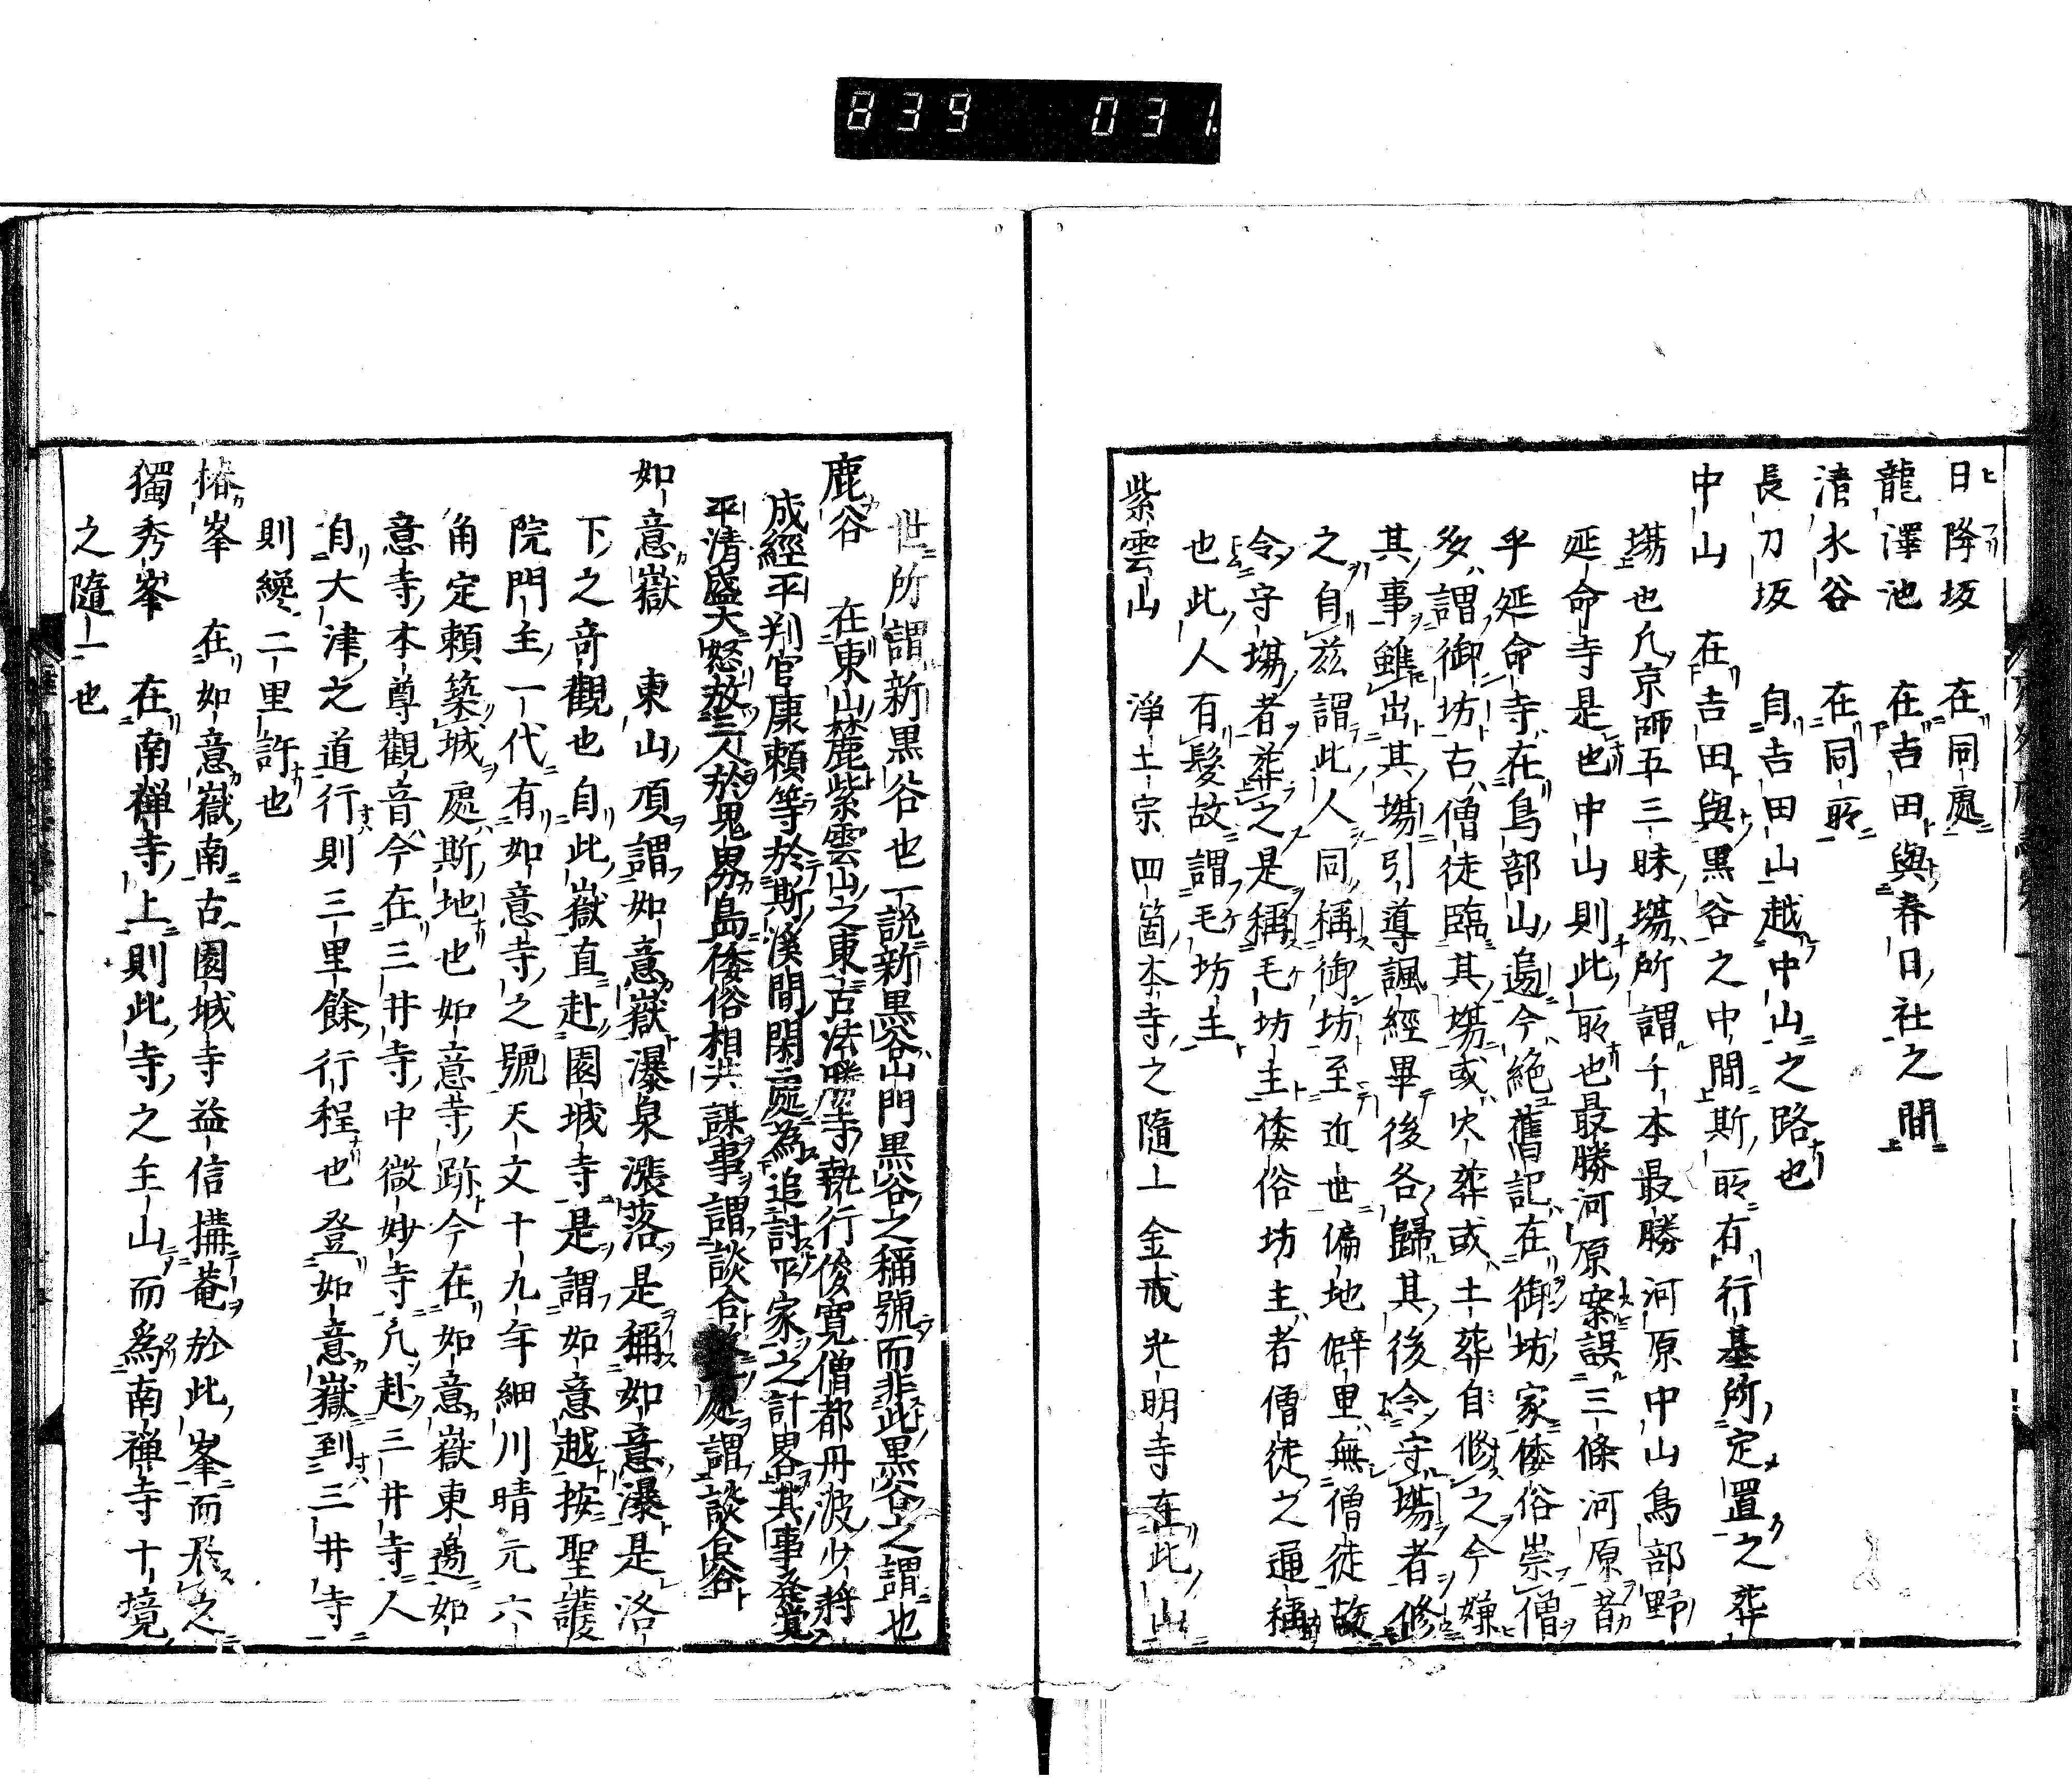 839 031
日降坂 在同處
龍澤池 在吉田與春日社之間
清水谷 在同所
長刀坂 自吉田山越中山之路也
中山 在吉田與黒谷之中間斯所有行基所定置之葬
場也凡京師五三昧場所謂千本最勝河原中山鳥部野
延命寺是也中山則此所也最勝河原案誤三條河原昔
乎延命寺在鳥部山邊今絶舊記在御坊家倭俗崇僧
多謂御坊古僧徒臨其場或火葬或土葬自修之今嫌
其事雖出其場引導諷經畢後各歸其後令守場者修
之自茲謂此人同稱御坊至近世偏地僻里無僧徒故
令守場者葬之是稱毛坊主倭俗坊主者僧徒之通稱
也此人有髮故謂毛坊主
紫雲山 淨土宗四箇本寺之隨一金戒光明寺在此山
世所謂新黒谷也一説新黒谷山門黒谷之稱號而非此黒谷之謂也
鹿谷 在東山麓紫雲山之東古法勝寺執行俊寛僧都丹波少將
成經平判官康頼等於斯溪間閑處為追討平家之計畧其事発覚
平清盛大怒放三人於鬼界島倭俗相共謀事謂談合處謂談合谷
如意嶽 東山頂謂如意嶽瀑泉漲落是稱如意瀑是洛
下之奇觀也自此嶽直赴園城寺是謂如意越按聖護
院門主一代有如意寺之號天文十九年細川晴元六
角定頼築城處斯地也如意寺跡今在如意嶽東邊如
意寺本尊觀音今在三井寺中微妙寺凡赴三井寺人
自大津之道行則三里餘行程也登如意嶽到三井寺
則纔二里許也
椿峯 在如意嶽南古園城寺益信搆菴於此峯而居之
獨秀峯 在南禅寺上則此寺之主山而爲南禅寺十境
之隨一也